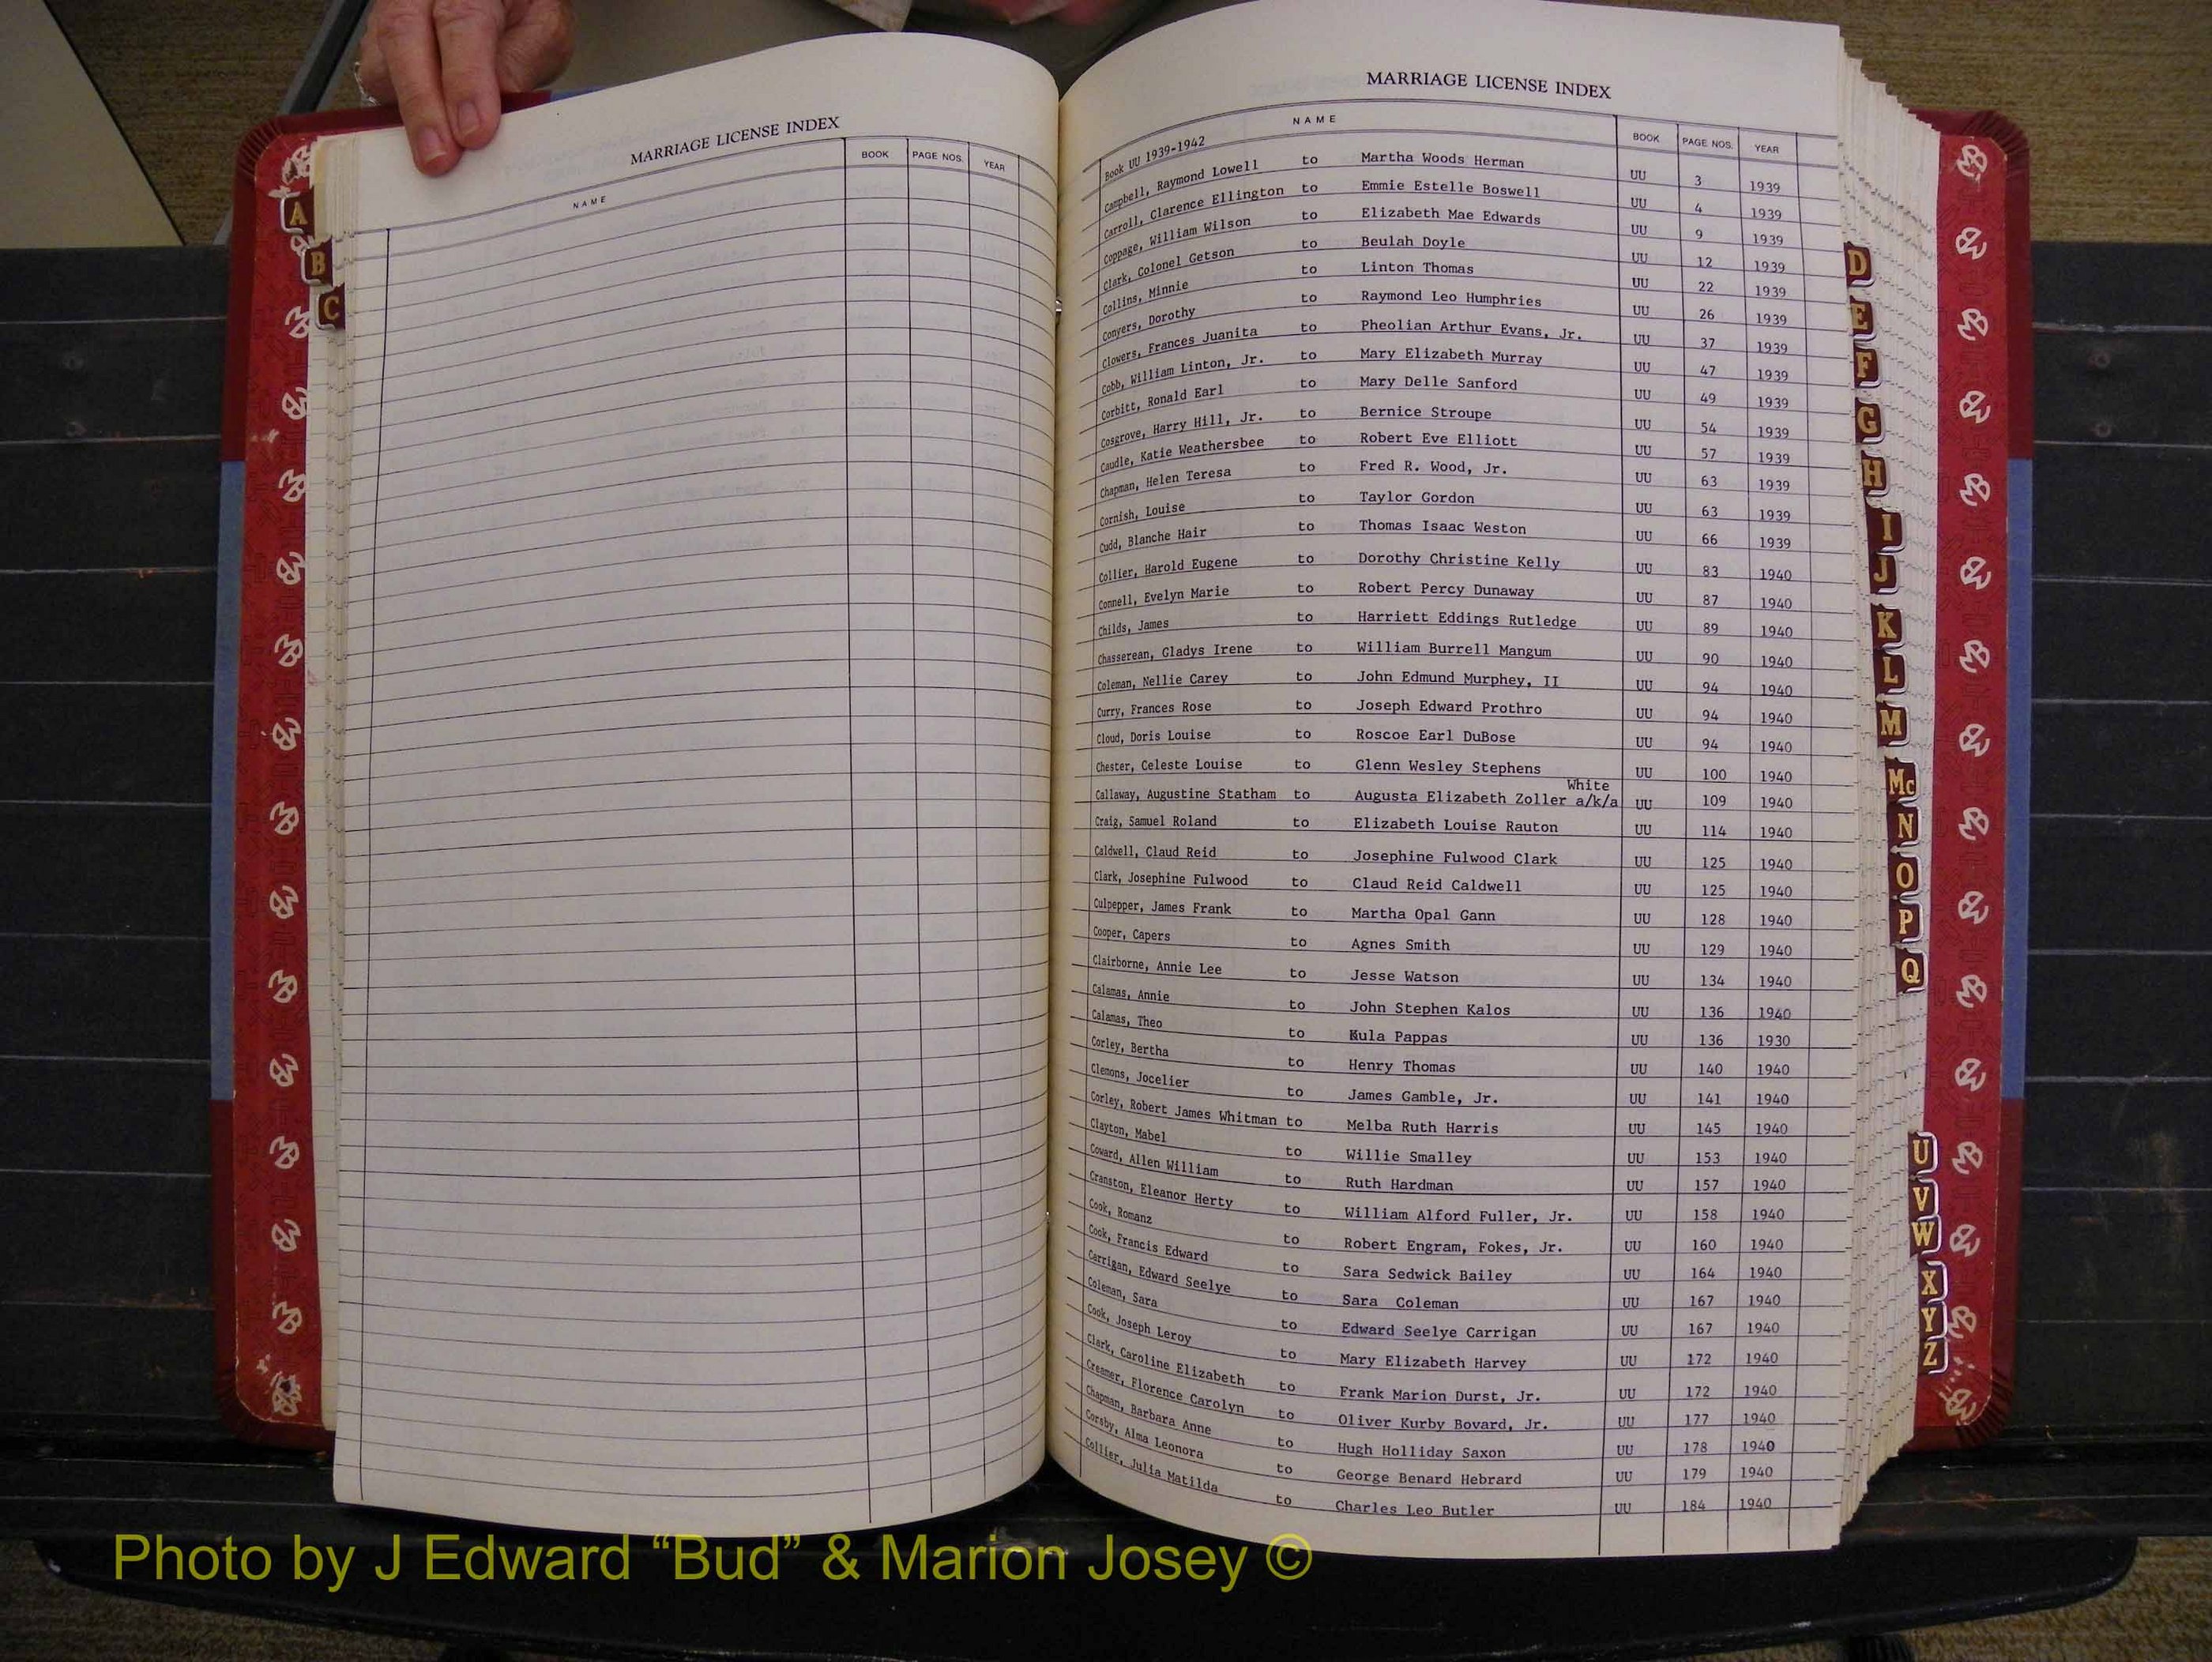 MARRIAGE LICENSE INDEX
NAME BOOK PAGE NOS. YEAR
A
B
C
MARRIAGE LICENSE INDEX
NAME BOOK PAGE NOS. YEAR
Book UU 1939-1942
Campbell, Raymond Lowell to Martha Woods Herman UU 3 1939
Carroll, Clarence Ellington to Emmie Estelle Boswell UU 4 1939
Coppage, William Wilson to Elizabeth Mae Edwards UU 9 1939
Clark, Colonel Getson to Beulah Doyle UU 12 1939
Collins, Minnie to Linton Thomas UU 22 1939
Conyers, Dorothy to Raymond Leo Humphries UU 26 1939
Clowers, Frances Juanita to Pheolian Arthur Evans, Jr. UU 37 1939
Cobb, William Linton, Jr. to Mary Elizabeth Murray UU 47 1939
Corbitt, Ronald Earl to Mary Delle Sanford UU 49 1939
Cosgrove, Harry Hill, Jr. to Bernice Stroupe UU 54 1939
Caudle, Katie Weathersbee to Robert Eve Elliott UU 57 1939
Chapman, Helen Teresa to Fred R. Wood, Jr. UU 63 1939
Cornish, Louise to Taylor Gordon UU 63 1939
Cudd, Blanche Hair to Thomas Isaac Weston UU 66 1939
Collier, Harold Eugene to Dorothy Christine Kelly UU 83 1940
Connell, Evelyn Marie to Robert Percy Dunaway UU 87 1940
Childs, James to Harriett Eddings Rutledge UU 89 1940
Chasserean, Gladys Irene to William Burrell Mangum UU 90 1940
Coleman, Nellie Carey to John Edmund Murphey, II UU 94 1940
Curry, Frances Rose to Joseph Edward Prothro UU 94 1940
Cloud, Doris Louise to Roscoe Earl DuBose UU 94 1940
Chester, Celeste Louise to Glenn Wesley Stephens UU 100 1940
White
Callaway, Augustine Statham to Augusta Elizabeth Zoller a/k/a UU 109 1940
Craig, Samuel Roland to Elizabeth Louise Rauton UU 114 1940
Caldwell, Claud Reid to Josephine Fulwood Clark UU 125 1940
Clark, Josephine Fulwood to Claud Reid Caldwell UU 125 1940
Culpepper, James Frank to Martha Opal Gann UU 128 1940
Cooper, Capers to Agnes Smith UU 129 1940
Clairborne, Annie Lee to Jesse Watson UU 134 1940
Calamas, Annie to John Stephen Kalos UU 136 1940
Calamas, Theo to Kula Pappas UU 136 1930
Corley, Bertha to Henry Thomas UU 140 1940
Clemons, Jocelier to James Gamble, Jr. UU 141 1940
Corley, Robert James Whitman to Melba Ruth Harris UU 145 1940
Clayton, Mabel to Willie Smalley UU 153 1940
Coward, Allen William to Ruth Hardman UU 157 1940
Cranston, Eleanor Herty to William Alford Fuller, Jr. UU 158 1940
Cook, Romanz to Robert Engram, Fokes, Jr. UU 160 1940
Cook, Francis Edward to Sara Sedwick Bailey UU 164 1940
Carrigan, Edward Seelye to Sara Coleman UU 167 1940
Coleman, Sara to Edward Seelye Carrigan UU 167 1940
Cook, Joseph Leroy to Mary Elizabeth Harvey UU 172 1940
Clark, Caroline Elizabeth to Frank Marion Durst, Jr. UU 172 1940
Creamer, Florence Carolyn to Oliver Kurby Bovard, Jr. UU 177 1940
Chapman, Barbara Anne to Hugh Holliday Saxon UU 178 1940
Corsby, Alma Leonora to George Benard Hebrard UU 179 1940
Collier, Julia Matilda to Charles Leo Butler UU 184 1940
D
E
F
G
H
I
J
K
L
M
Mc
N
O
P
Q
U
V
W
X
Y
Z
Photo by J Edward “Bud” & Marion Josey ©